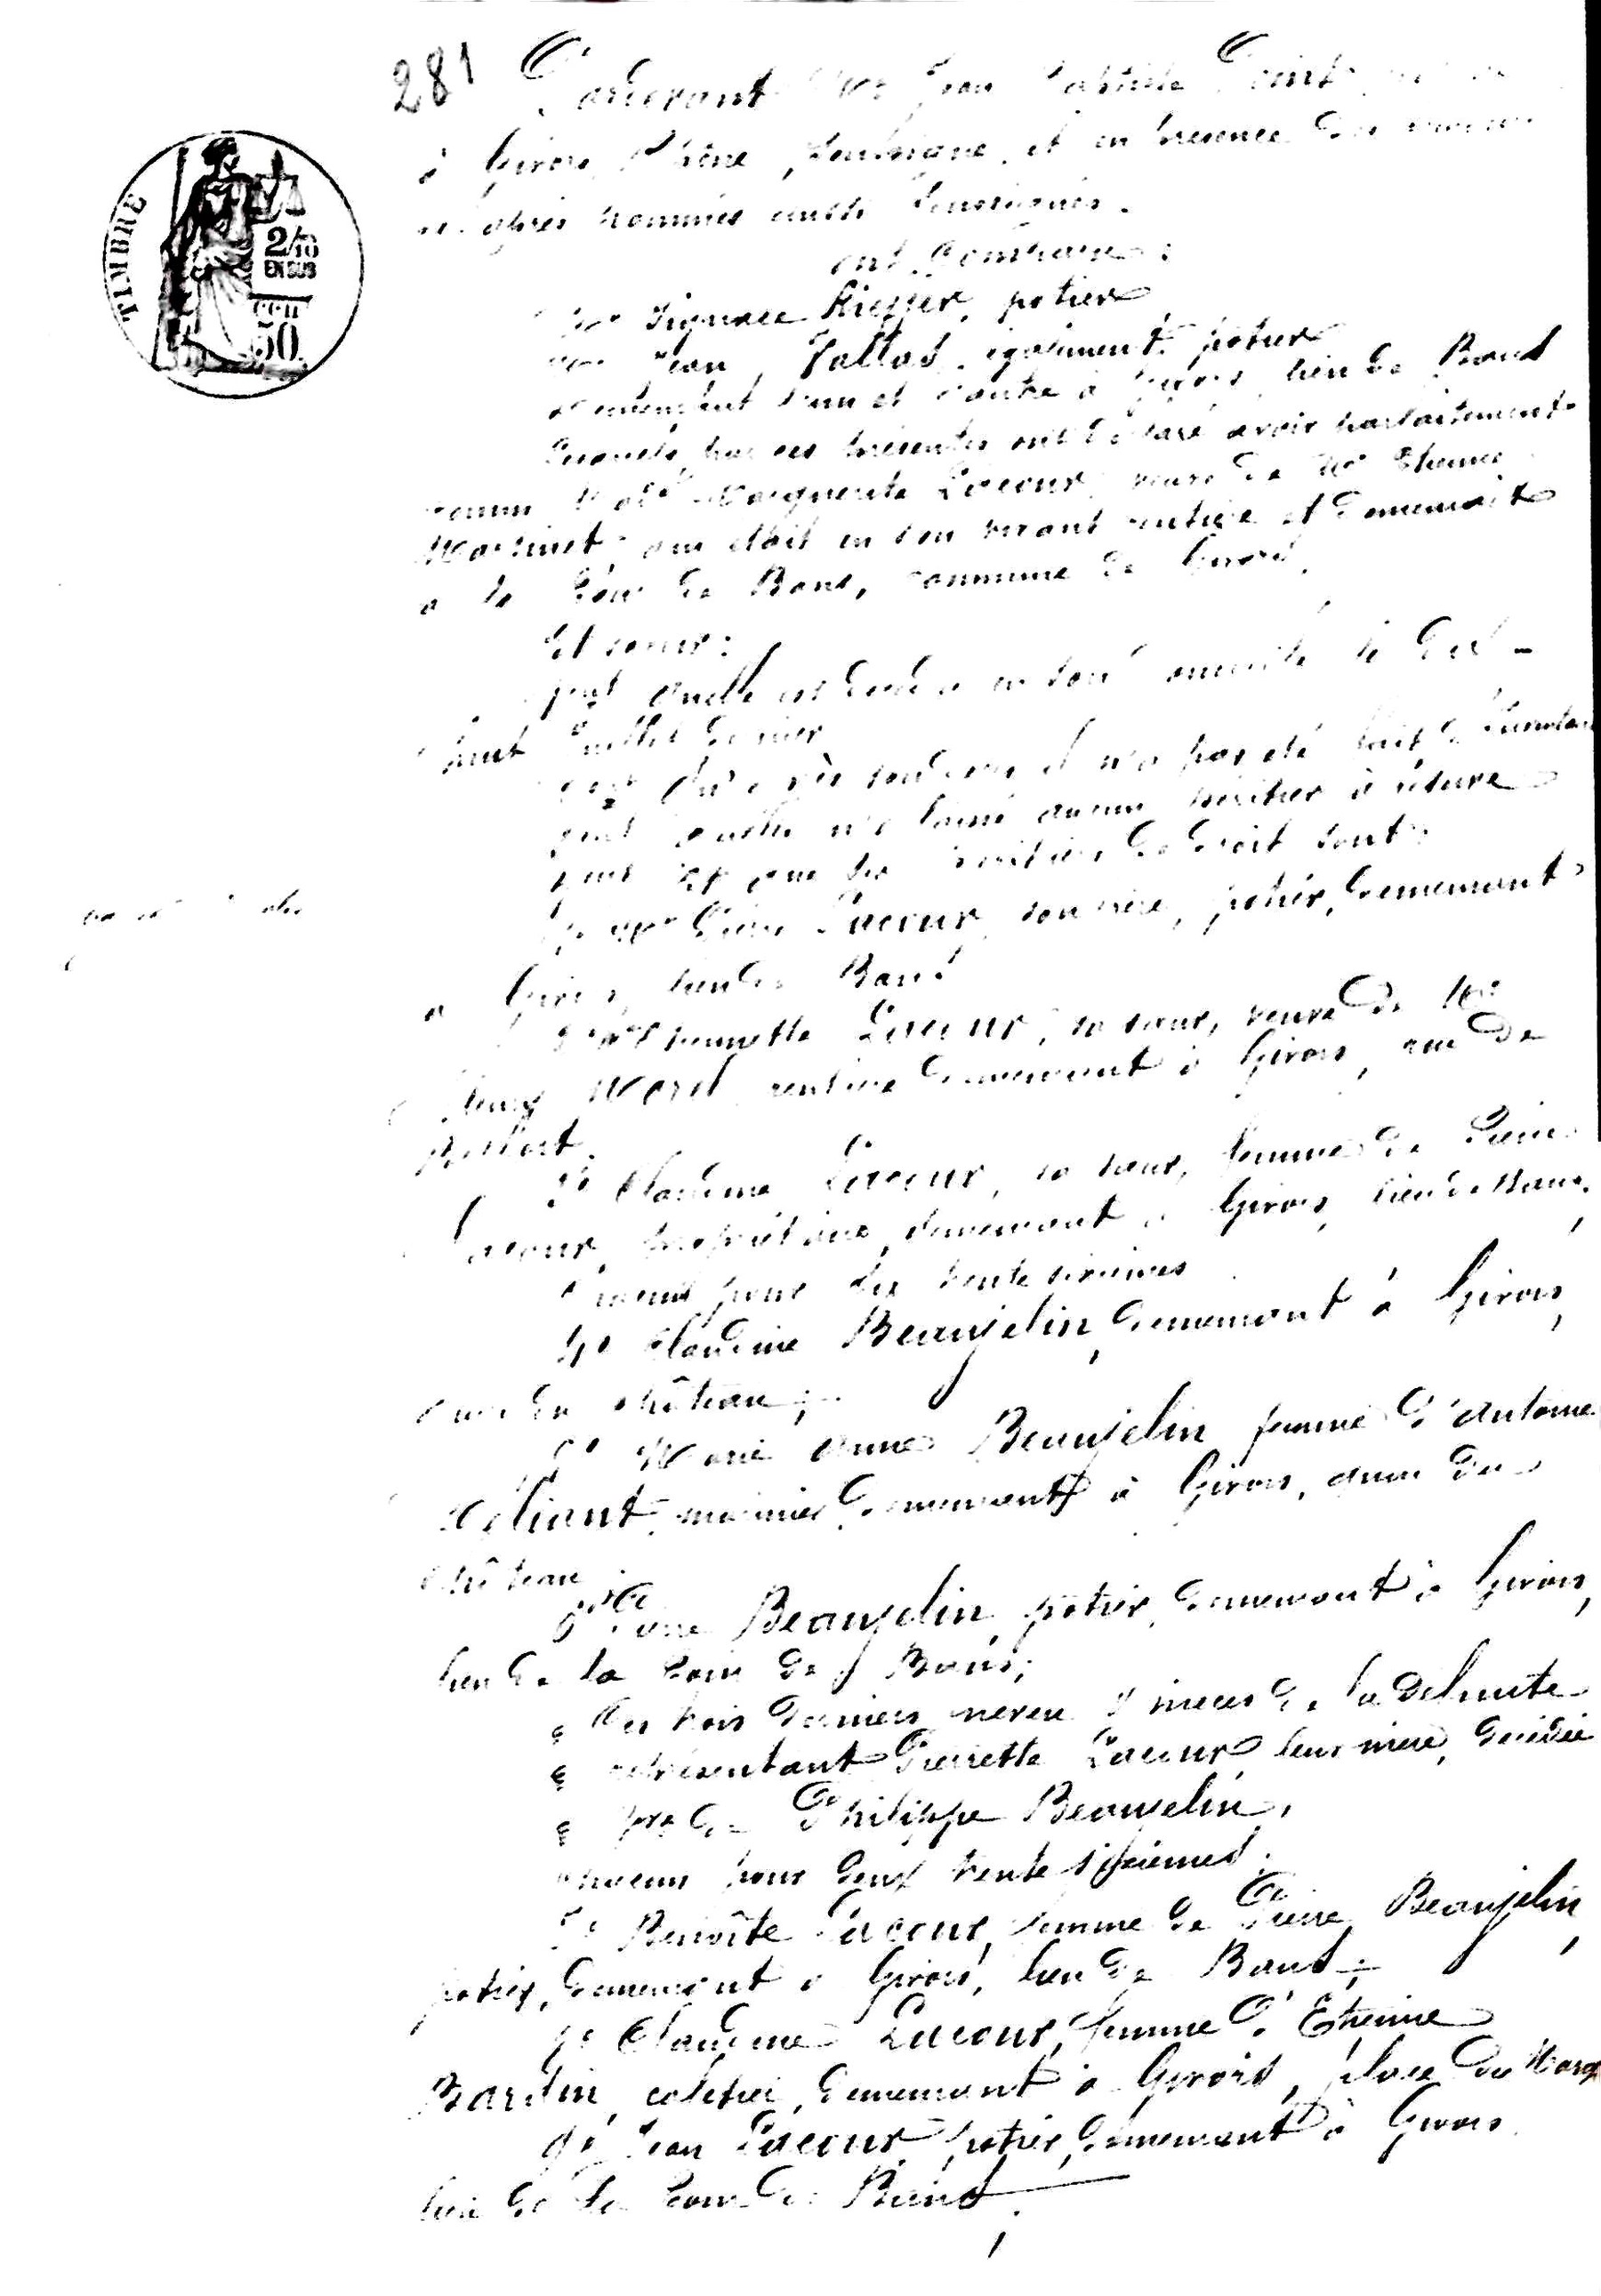 281
Pardevant Me Jean Baptiste
à Givors, Rhône, soussigné, et en présence des
ci-après nommés aussi soussignés.
ont comparu :
TIMBRE
2/10
EN SUS
50
potier
Mr Jean Vallas, également potier
demeurant l'un et l'autre à Givors, lieu de Bans
Lesquels par ces présentes ont déclaré avoir parfaitement
connu Marguerite Lacour, veuve de Mr Etienne
Martinet, qui était en son vivant rentière et demeurait
à la Cour de Bans, commune de Givors.
Et savoir :
qu'elle est décédée en son domicile le dix-
huit Juillet dernier
Qu'après son décès il n'a pas été fait d'inventaire
qu'elle n'a laissé aucun héritier à réserve
Et que ses héritiers de droit sont :
Lacour, son frère, potier, demeurant
à Givors, lieu de Bans
Jeannette Lacour, sa sœur, veuve de Mr
Morel, rentière demeurant à Givors, rue de
Belfort.
3° Claudine Lacour, sa sœur, femme de Pierre
Lacour, propriétaire, demeurant à Givors, lieu de Bans.
chacun pour six trente sixièmes
4° Claudine Beaujolin, demeurant à Givors,
quai du château ;
5° Marie Anne Beaujolin femme d'Antoine
marinier, demeurant à Givors, quai du
château
6° Pierre Beaujolin, potier, demeurant à Givors,
lieu de la Cour de Bans;
Ces trois derniers neveu & nièces de la défunte
représentant Pierrette Lacour leur mère, décédée
Philippe Beaujolin,
chacun pour deux trente sixièmes.
7° Benoîte Lacour, femme de Pierre Beaujolin,
potier, demeurant à Givors, lieu de Bans ;
8° Claudine Lacour, femme d'Etienne
Bardin, cafetier, demeurant à Givors, place du
9° Jean Lacour potier, demeurant à Givors
lieu de la Cour de Bans ;